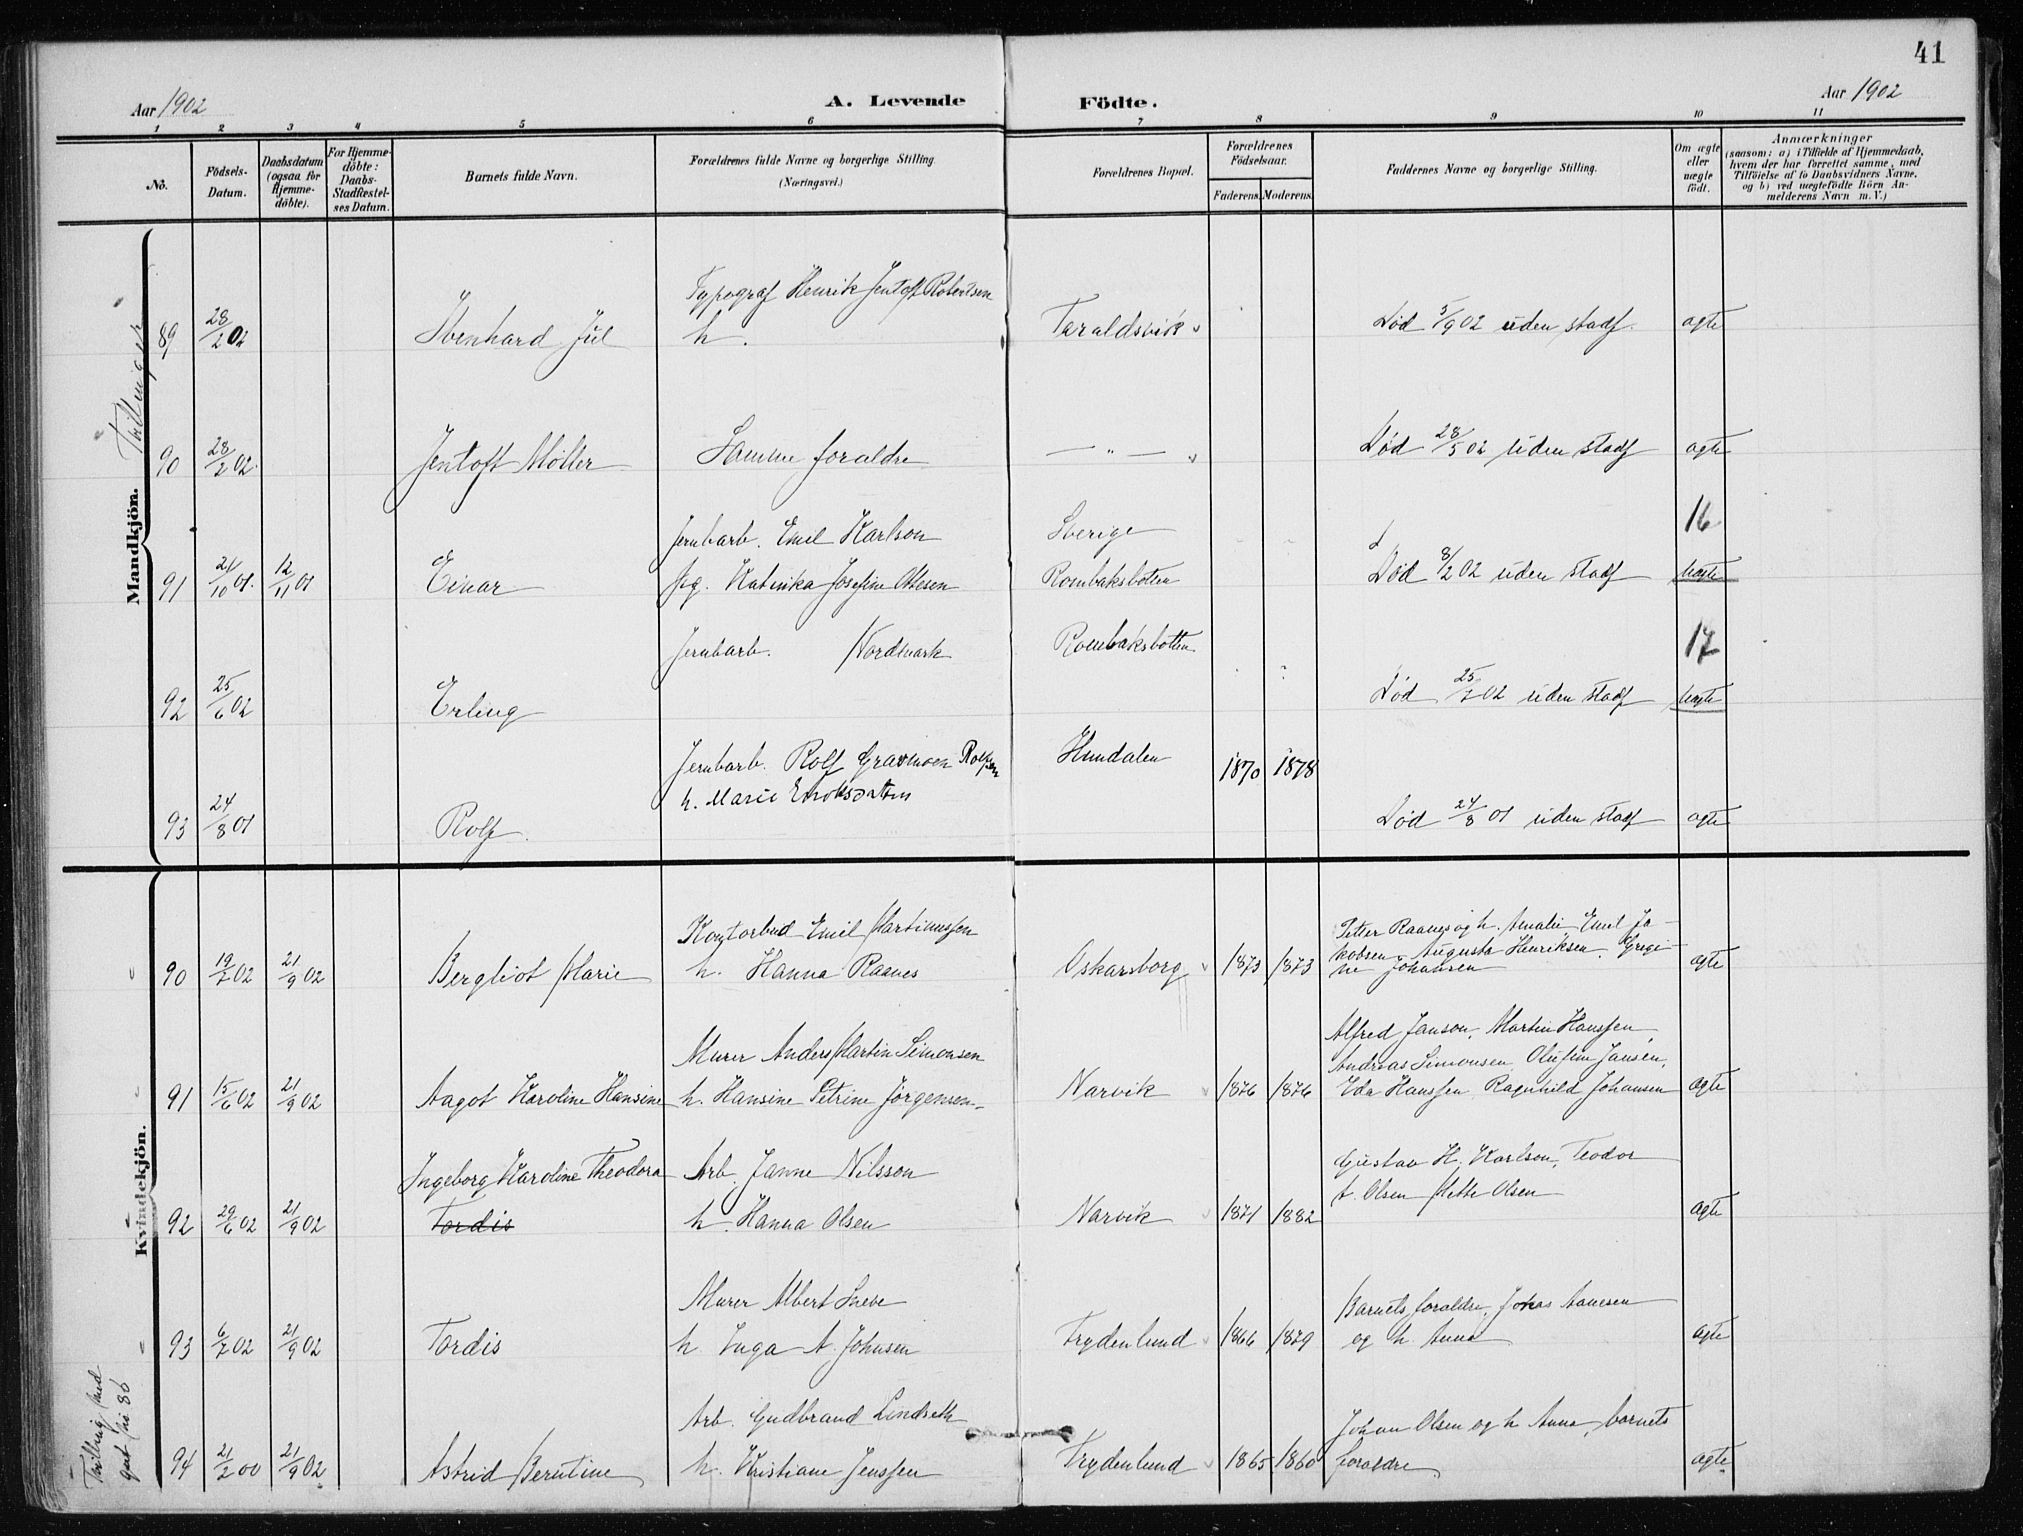 41
Aar 1902
A. Levende Födte.
Aar 1902
1 2 3 4 5 6 7 8 9 10 11
No.
Födsels-Datum.
Daabsdatum (ogsaa for Hjemme-döbte).
For Hjemme-döbte: Daabs-Stadfæstel-ses Datum.
Barnets fulde Navn.
Forældrenes fulde Navne og borgerlige Stilling.
(Næringsvei.)
Forældrenes Bopæl.
Forældrenes Födselsaar.
Faderens. Moderens.
Faddernes Navne og borgerlige Stilling.
Om ægte eller uægte födt.
Anmærkninger
(saasom: a) i Tilfælde af Hjemmedaab,
hvem der har forrettet samme, med
Tilföielse af to Daabsvidners Navne,
og b) ved uægtefödte Börn An-
melderens Navn m. V.)
Mandkjön.
Typograf Henrik Jentoft Robertsen
89 28/2 02 Evenhard Jul h. Taraldsvik Död 5/9 02 uden stadf. ægte
90 28/2 02 Jentoft Møller Samme foraldre — " — Död 28/5 02 uden stadf ægte
Jernbarb. Emil Karlson Sverige 16
91 21/10 01 12/11 01 Einar pig. Katinka Josefine Olesen Rombaksbotten Död 8/2 02 uden stadf uægte
Jernbarb. Nordmark Rombaksbotten 17
92 25/6 02 Erling Död 25/7 02 uden stadf uægte
Jernbarb. Rolf Gravmoen Hundalen 1870 1878
h. Marie
93 24/8 01 Rolf. Död 24/8 01 uden stadf ægte
Kvindekjön.
Kontorbud Emil Martinussen Petter Raanes og h. Amalie Emil Ja-
kobsen Augusta Henriksen, Gregi-
90 19/7 02 21/9 02 Bergliot Marie h. Hanna Raanes Oskarsborg 1873 1873 ne Johansen ægte
Alfred Janson, Martin Hanssen,
Murer Anders Martin Simonsen Andreas Simonsen, Olufine Jansen,
91 15/6 02 21/9 02 Aagot Karoline Hansine h. Hansine Petrine Jørgensen Narvik 1876 1876 Eda Hanssen Ragnhild Johansen ægte
Ingeborg Karoline Theodora Arb. Janne Nilsson Gustav H. Karlson, Teodor
A. Olsen Mette Olsen
92 29/6 02 21/9 02 Tordis h. Hanna Olsen Narvik 1871 1882 ægte
Murer Albert Sneve Barnets foraldre, Johas Aanesen
93 6/7 02 21/9 02 Tordis h. Inga A. Johnsen Frydenlund 1866 1879 og h. Anna ægte
Tvilling med
gut No 86
Arb. Gudbrand Lindseth Johan Olsen og h Anna, barnets
94 21/2 00 21/9 02 Astrid Berntine h. Kristiane Jenssen Frydenlund 1865 1860 foraldre ægte